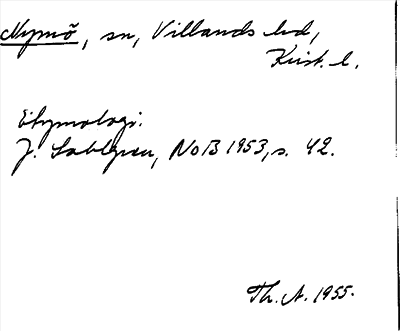 Nymö, sn, Villands hd,
Krist. l.
Etymologi.
J. Sahlgren, NoB 1953, s. 42.
Th. A. 1955.